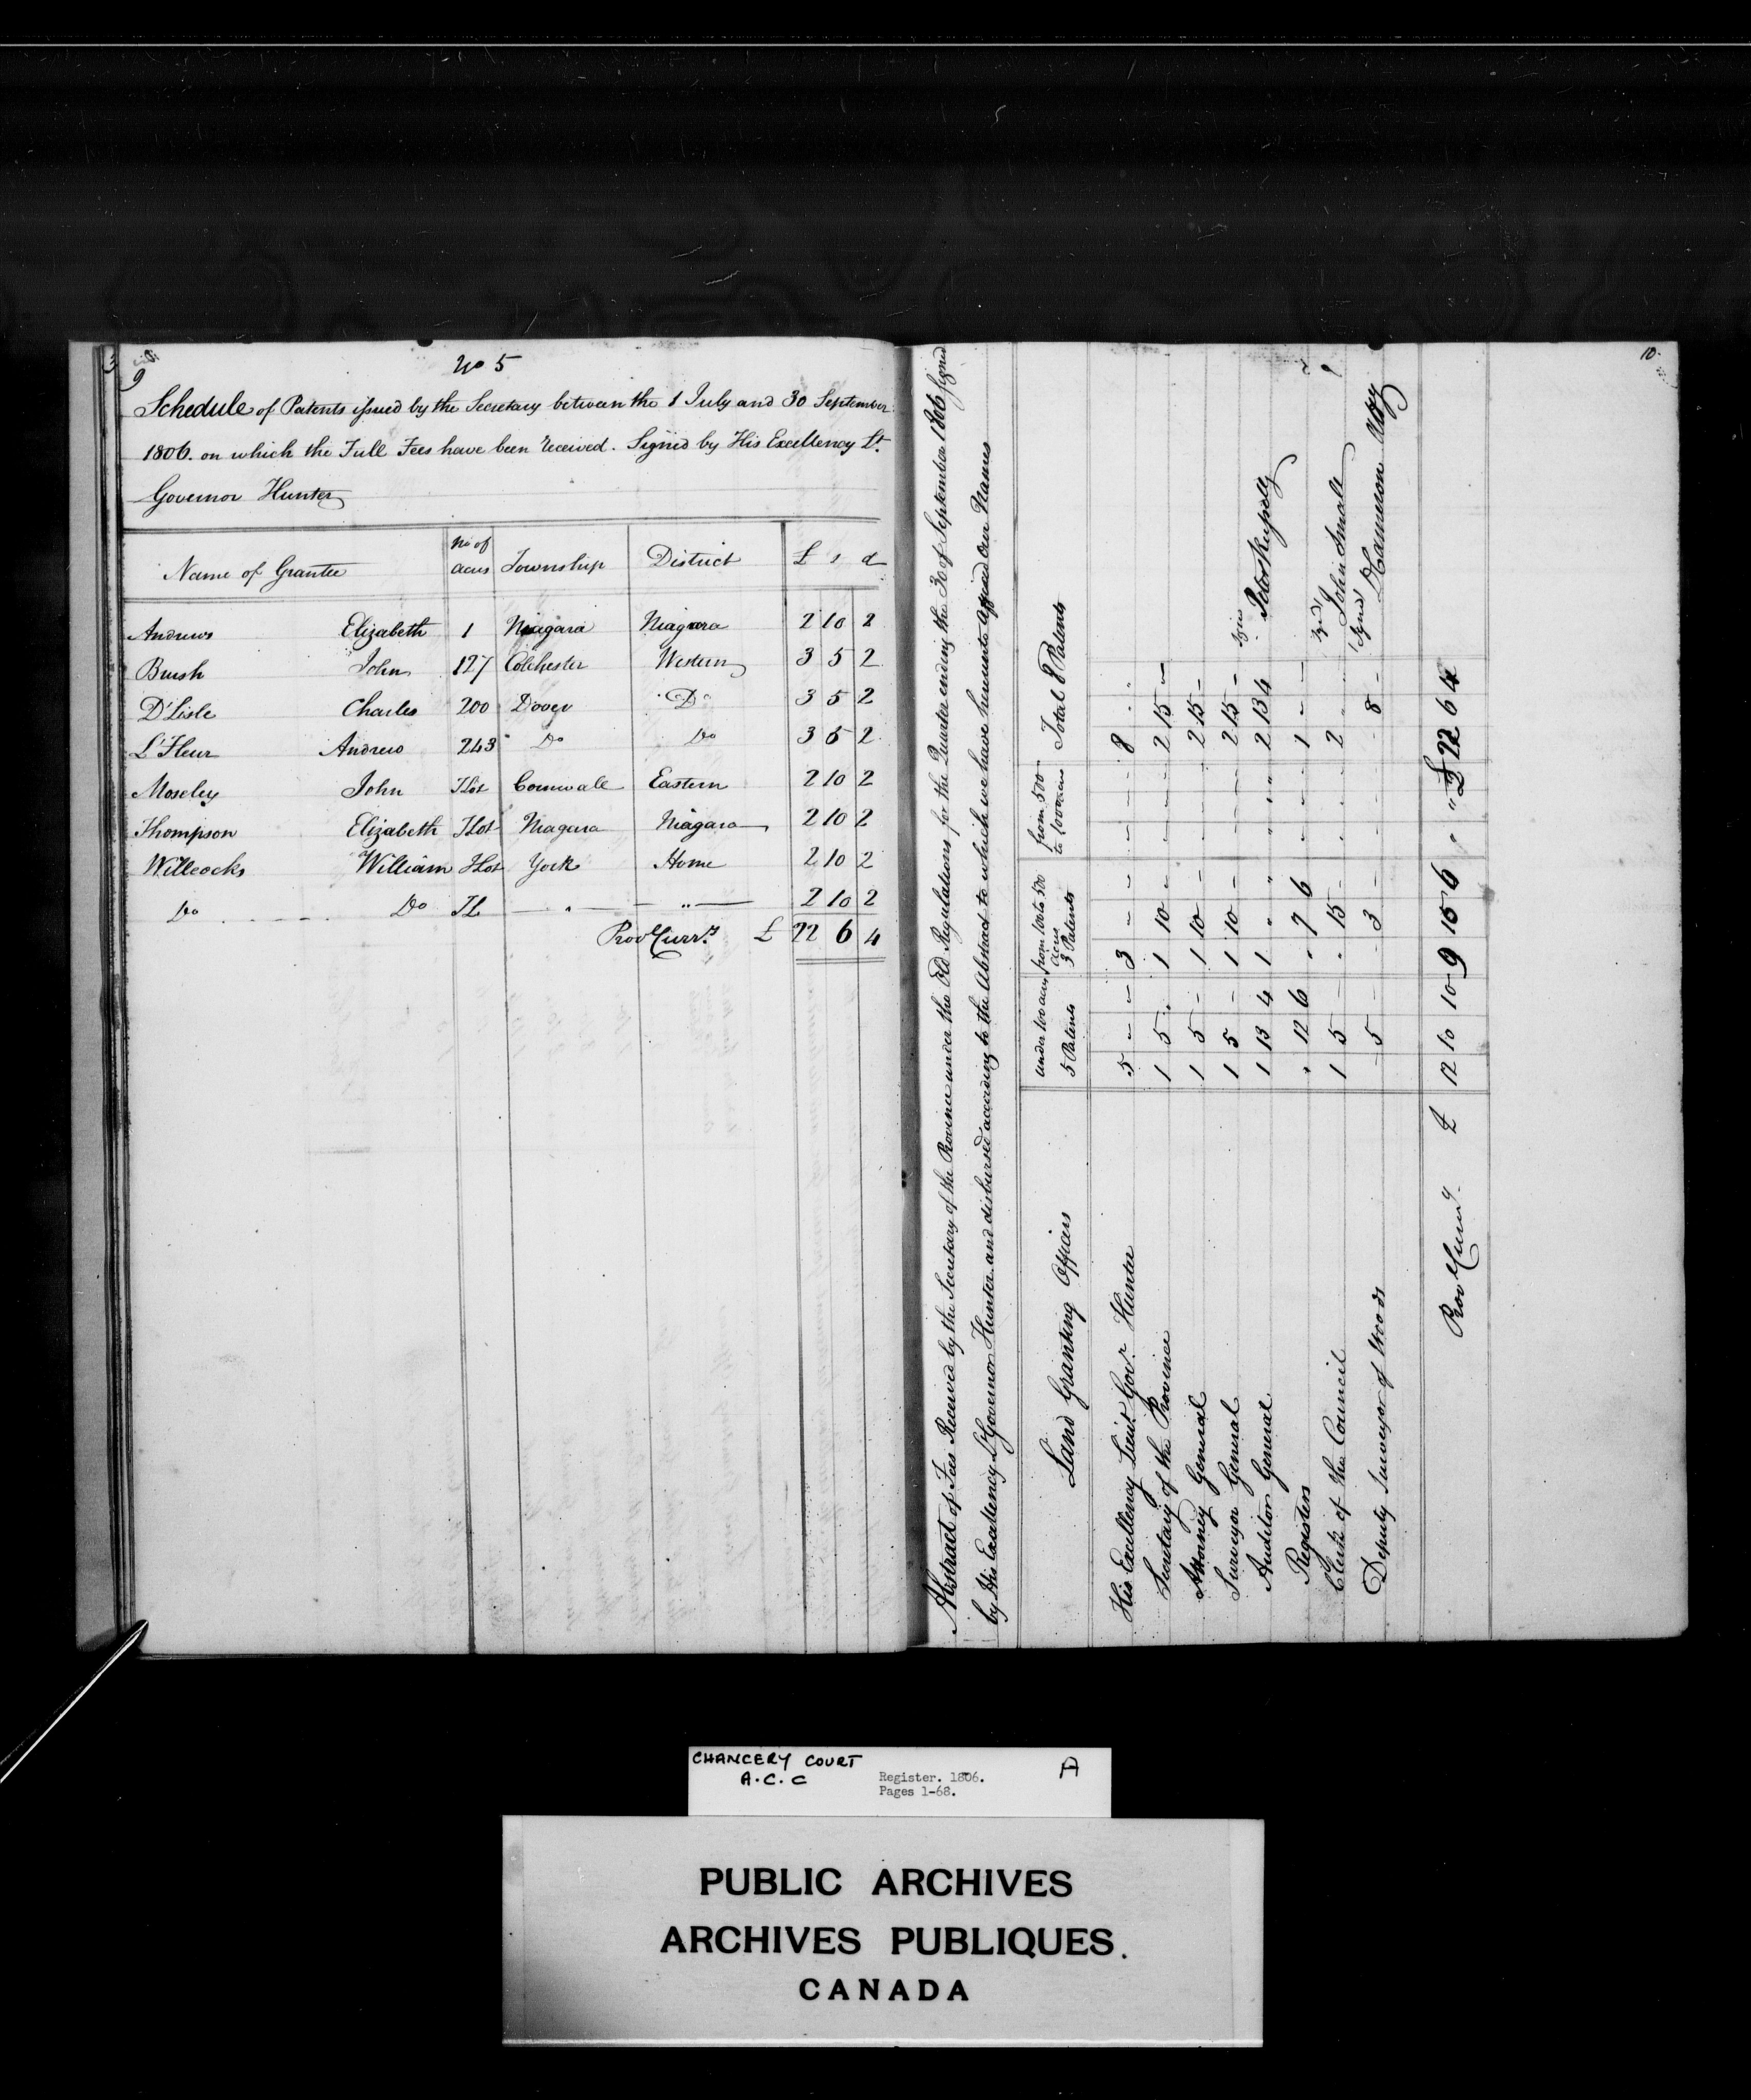 9
No 5
Schedule of Patents issued by the Secretary between the 1 July and 30 September
1806. on which the Full Fees have been received. Signed by His Excellency Lt.
Governor Hunter
Name of Grantee No of acres Township District £ s d
Andrews Elizabeth 1 Niagara Niagara 2 10 2
Brush John 127 Colchester Western 3 5 2
D'Lisle Charles 200 Dover Do 3 5 2
L'Fleur Andrew 243 Do Do 3 5 2
Moseley John TLot Cornwall Eastern 2 10 2
Thompson Elizabeth TLot Niagara Niagara 2 10 2
Willcocks William TLot York Home 2 10 2
Do Do TL — " — — " — 2 10 2
Prov Curry. £ 22 6 4
10.
Abstract of Fees Received by the Secretary of the Province under the Old Regulations for the Quarter ending the 30 of September 1806 Signed
by His Excellency Lt Governor Hunter and disbursed according to the Abstract to which we have hereunto affixed our Names
Land Granting Officers under 100 acres 5 Patents from 100 to 500 acres 3 Patents from 500 to 1000 acres Total 8 Patents
His Excellency Lieut. Govr. Hunter 5 - - 3 - - - - - 8 " "
Secretary of the Province 1 5 " 1 10 - - - - 2 15 -
Attorney General 1 5 - 1 10 - - - - 2 15 -
Surveyor General 1 5 - 1 10 - - - - 2 15 -
Auditor General 1 13 4 1 " " " " " 2 13 4 signd Peter Russell
Registers " 12 6 " 7 6 - - - 1 - -
Clerk of the Council 1 5 - " 15 - - - - 2 " " signd John Small
Deputy Surveyor of Woods - 5 - 3 - - - - 8 - signed D Cameron
Prov Curry. £ 12 10 10 9 15 6 " " " £ 22 6 4
CHANCERY COURT
A.C.C
Register. 1806.
Pages 1-68.
A
PUBLIC ARCHIVES
ARCHIVES PUBLIQUES.
CANADA